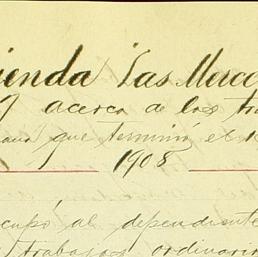 ienda "Las Merce
y acerca de los tra
ana que terminó el 1
1908
cupó al dependiente
trabajos ordinari